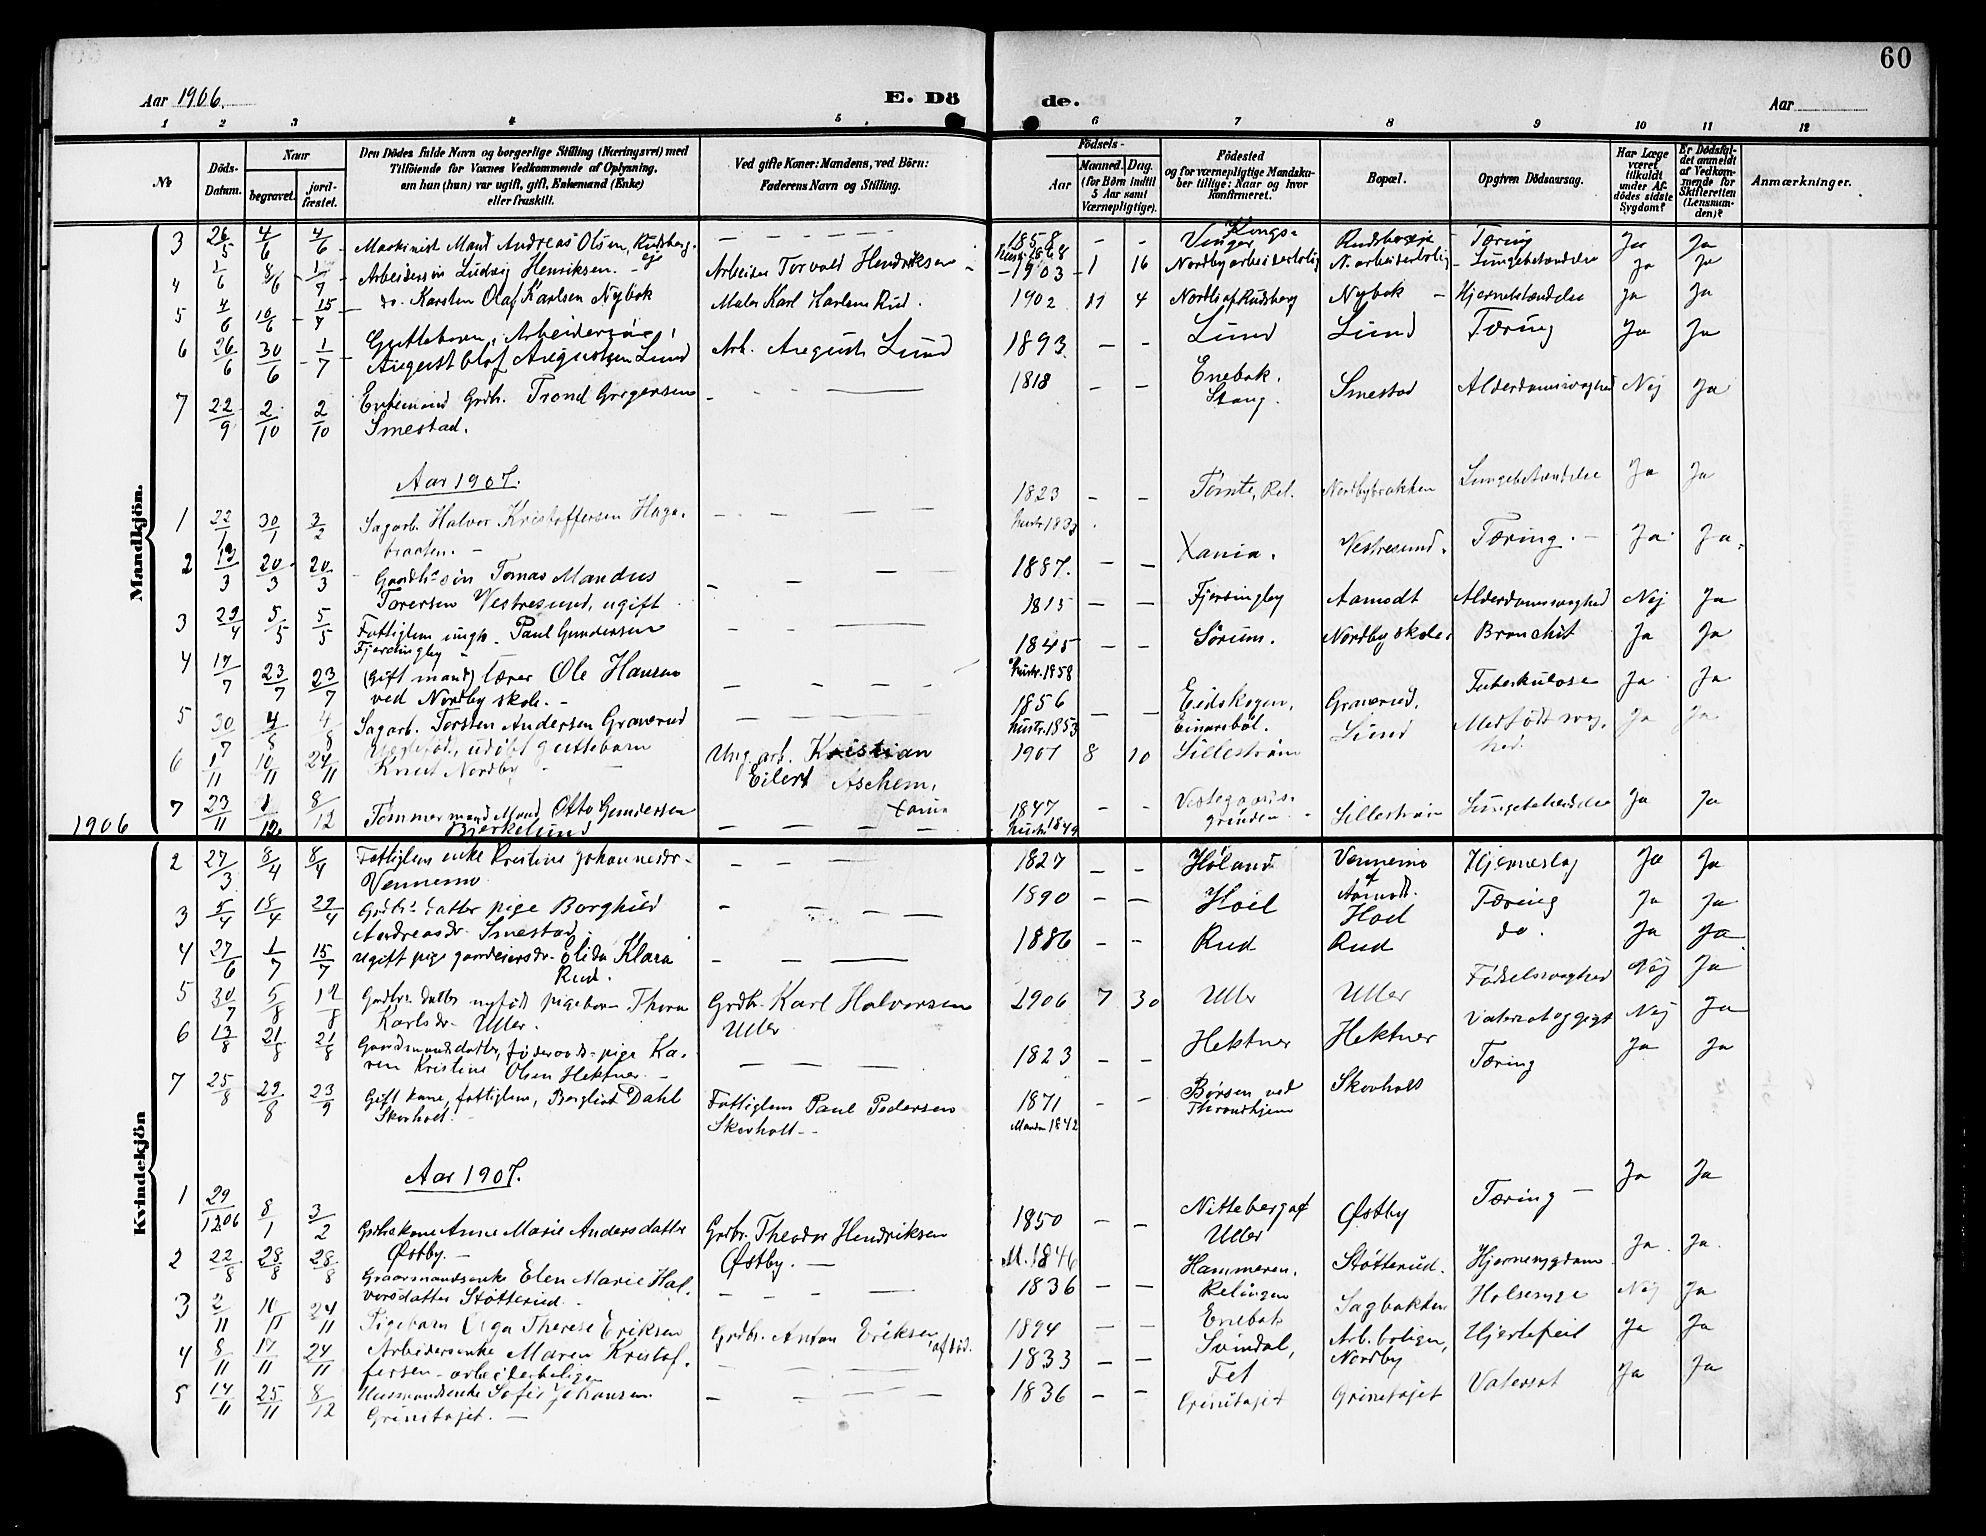 60
Aar 1906.
E. Dö de.
Aar
1 2 3 4 5 6 7 8 9 10 11 12
No
Döds-Datum.
Naar
begravet.
jordfæstet.
Den Dödes fulde Navn og borgerlige Stilling (Næringsvei) med
Tilföiende for Voxnes Vedkommende af Oplysning,
om han (hun) var ugift, gift, Enkemand (Enke)
eller fraskilt.
Ved gifte Koner: Mandens, ved Börn:
Faderens Navn og Stilling.
Födsels-
Aar
Maaned. Dag.
(for Børn indtil
5 Aar samt
Værnepligtige).
Födested
og for værnepligtige Mandskaber tillige: Naar og hvor
konfirmeret.
Bopæl.
Opgiven Dödsaarsag.
Har Læge været tilkaldt under Afdödes sidste Sygdom?
Er Dödsfaldet anmeldt af Vedkommende for Skifteretten (Lensmanden)?
Anmærkninger.
Mandkjön.
3 26/5 4/6 4/6 Maskinist Mand Andreas Olsen, Rudsberg. 1858 – – Kongsvinger Tæring Ja Ja
4 1/6 8/6 1/7 Arbeidersøn Ludvig Henriksen. Arbeider Torvald Hendriksen 1903 1 16 Nordby arbeiderbolig N. arbeiderbolig Lungebetændelse Ja Ja
5 4/6 10/6 15/7 do. Karsten Olaf Karlsen Nybak Maler Karl Karlsen Rud. 1902 11 4 Nordli af Rudsberg Nybak Hjernebetændelse Ja Ja
6 26/6 30/6 1/7 Guttebarn, Arbeidersøn,
August Olaf Augustsen Lund Arb. August Lund 1893 – – Lund Lund Tæring Ja Ja
7 22/9 2/10 2/10 Enkemand Grdb. Trond Gregersen
Smestad. 1818 – – Enebak. Stang. Smestad Alderdomssvaghed Nej Ja
Aar 1907.
1 22/1 30/1 3/2 Sagarb. Halvor Kristoffersen Haga-
braaten. 1823 – – Tomte, Rel. Nordbybrakken Lungebetændelse Ja Ja
2 13/3 20/3 20/3 Gaardbr. søn Tomas Mandus
Torersen Vestresund, ugift 1887. – – Xania. Vestresund. Tæring. Ja Ja
3 29/4 5/5 5/5 Fattiglem ungk. Paul Gundersen
Fjerdingby 1815 – – Fjersingby Aamodt Alderdomssvaghed Nej Ja
4 17/7 23/7 23/7 (Gift mand) lærer Ole Hansen
ved Nordby skole. 1845 hustr. 1858 – – Sørum. Nordby skole Bronchit Ja Ja
5 30/7 4/8 4/8 Sagarb. Torsten Andersen Granerud 1856 hustr. 1853 – – Eidskogen, Granerud. Tuberkulose Ja Ja
6 1/11 10/11 24/11 udøbt guttebarn
Knut Nordby Ung. arb. Kristian
Eilert Aschem, Xania 1907 8 10 Lillestrøm Lund Medfödt svaghed Ja Ja
7 23/11 1/12 8/12 Tømmermand Mand Otto Gundersen
Bjerkelund 1847 hustr. 1849 – – Lillestrøm Lungebetændelse Ja Ja
1906
Kvindekjön
2 27/3 8/4 8/4 Fattiglem enke Kristine Johannesdr.
Vennemo 1827 – – Høland Vennemo af Aamodt. Hjerneslag Ja Ja
3 5/4 18/4 29/4 Grdbr. datter pige Borghild
Andreasdr. Smestad, 1890 – – Hoel Hoel Tæring Ja Ja
4 27/6 1/7 15/7 Ugift pige gaardeiersdr. Elida Klara
Rud. 1886 – – Rud Rud do. Ja Ja
5 30/7 5/8 12/8 Grdbr. datter nyfødt pigebarn Thora
Karlsdr. Uller. Grdb. Karl Halvorsen
Uller 1906 7 30 Uller Uller Fødselssvaghed Nej Ja
6 13/8 21/8 21/8 Gaardmandsdatter, føderaads-pige Ka-
ren Kristine Olsen Hektner. 1823 – – Hektner Hektner Vatersot og gigt Nej Ja
7 25/8 29/8 23/9 Gift kone, fattiglem, Bergliot Dahl
Skovholt. Fattiglem Paul Pedersen
Skovholt 1871 Manden 1842 – – Børsen ved
Throndhjem Skovholt Tæring Ja Ja
Aar 1907.
1 29/12 06 8/1 3/2 Grdbr. kone Anne Marie Andersdatter
Østby. Grdbr. Theodor Hendriksen
Østby. 1850 M. 1846 – – Nitteberg af
Uller Østby Tæring Ja Ja
2 22/8 28/8 28/8 Gaardmandsenke Elen Marie Hal-
vorsdatter Støtterud. 1836 – – Hammeren,
Relingen Støtterud. Hjernesygdom Ja. Ja.
3 2/11 10/11 24/11 Pigebarn Olga Therese Eriksen Grdbr. Anton Eriksen, afdød. 1894 – – Enebak Sagbakken Halsesyge Nej Ja
4 8/11 17/11 24/11 Arbeiderenke Maren Kristof-
fersen arbeiderboligen 1833 – – Svindal,
Fet Arb. boligen,
Nordby Hjertefeil Ja Ja
5 14/11 25/11 8/12 Husmandsenke Sofie Johansen
Grinitajet. 1836 – – Grinitajet Grinitajet Vatersot Ja Ja